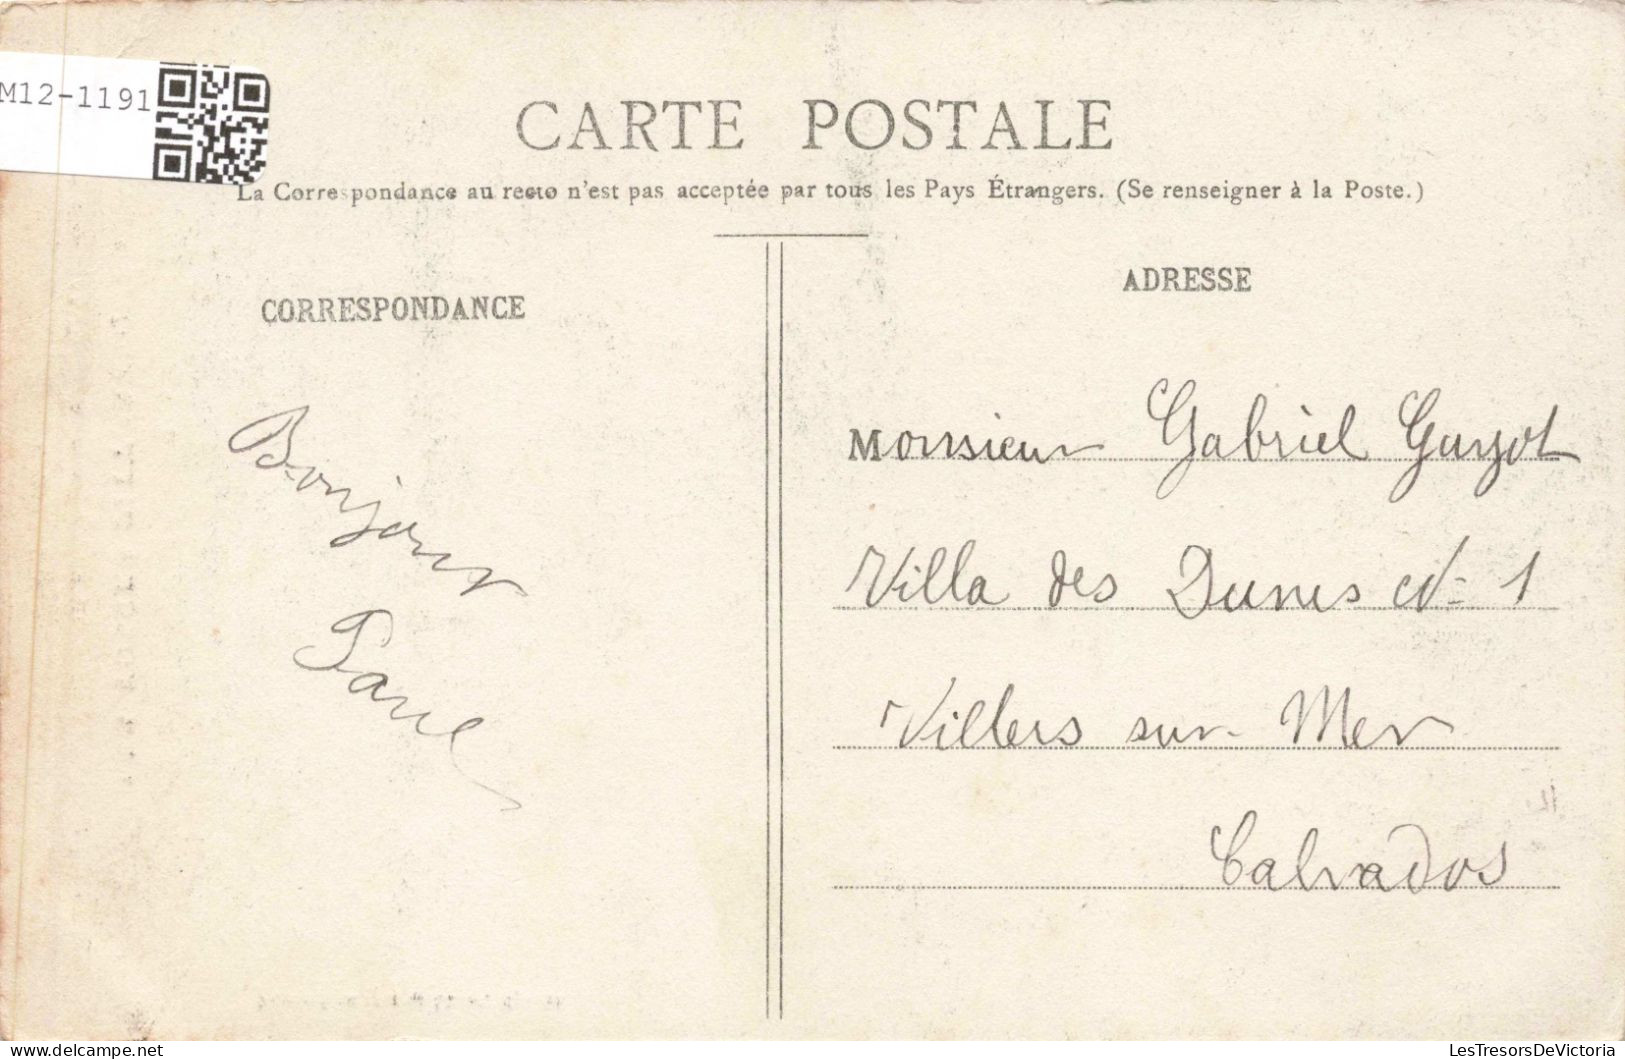 M12-1191
CARTE POSTALE
La Correspondance au recto n'est pas acceptée par tous les Pays Étrangers. (Se renseigner à la Poste.)
CORRESPONDANCE
Bonjour
Paul
ADRESSE
Monsieur Gabriel Guyot
Villa des Dunes N° 1
Villers sur Mer
Calvados
LesTresorsDeVictoria
www.delcampe.net